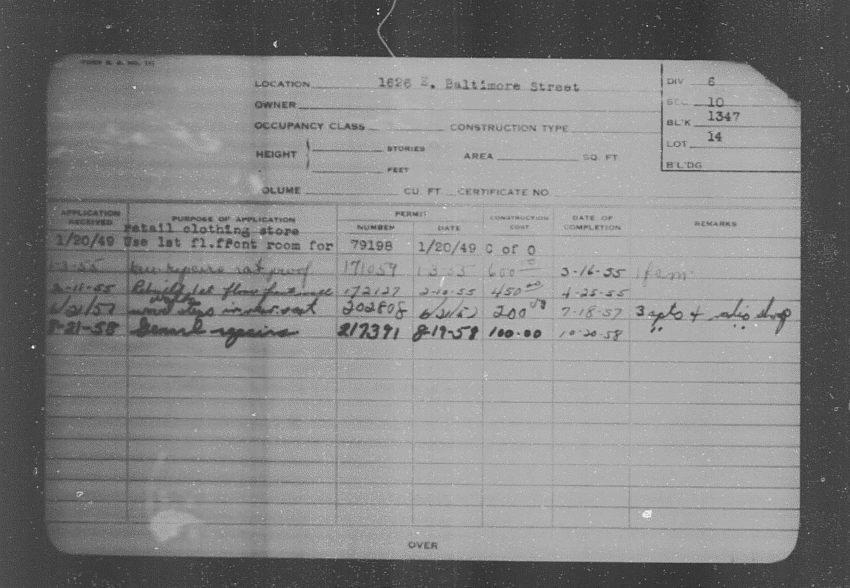 LOCATION 1626 E. Baltimore Street
DIV 6
OWNER
SEC. 10
OCCUPANCY CLASS CONSTRUCTION TYPE
BL'K 1347
HEIGHT STORIES AREA SQ. FT.
LOT 14
FEET
B'L'DG
VOLUME CU. FT. CERTIFICATE NO.
APPLICATION RECEIVED PURPOSE OF APPLICATION PERMIT NUMBER DATE CONSTRUCTION COST DATE OF COMPLETION REMARKS
retail clothing store
1/20/49 Use 1st fl.front room for 79198 1/20/49 C of O
1-3-55 repairs rat proof 171059 1 3 55 600 00 3-16-55 1 fam
55 1st floor 172127 2-10-55 450 00 4-25-55
6/21/57 wood steps in 202808 6/21/57 200 00 7-18-57 3 apts & radio shop
8-21-58 General repairs 217391 8-19-58 100.00 10-20-58 " "
OVER